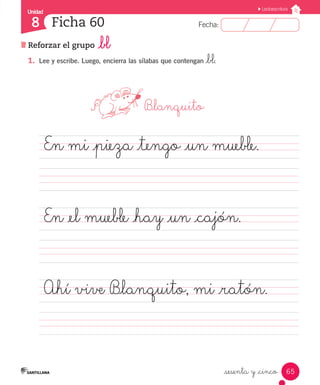 Lectoescritura
Unidad
8 Ficha 60
Fecha:
Reforzar el grupo bl
1. Lee y escribe. Luego, encierra las sílabas que contengan bl.
Blanquito
En mi pieza tengo un mueble.
En el mueble hay un cajón.
Ahí vive Blanquito, mi ratón.
SANTILLANA
sesenta y cinco 65